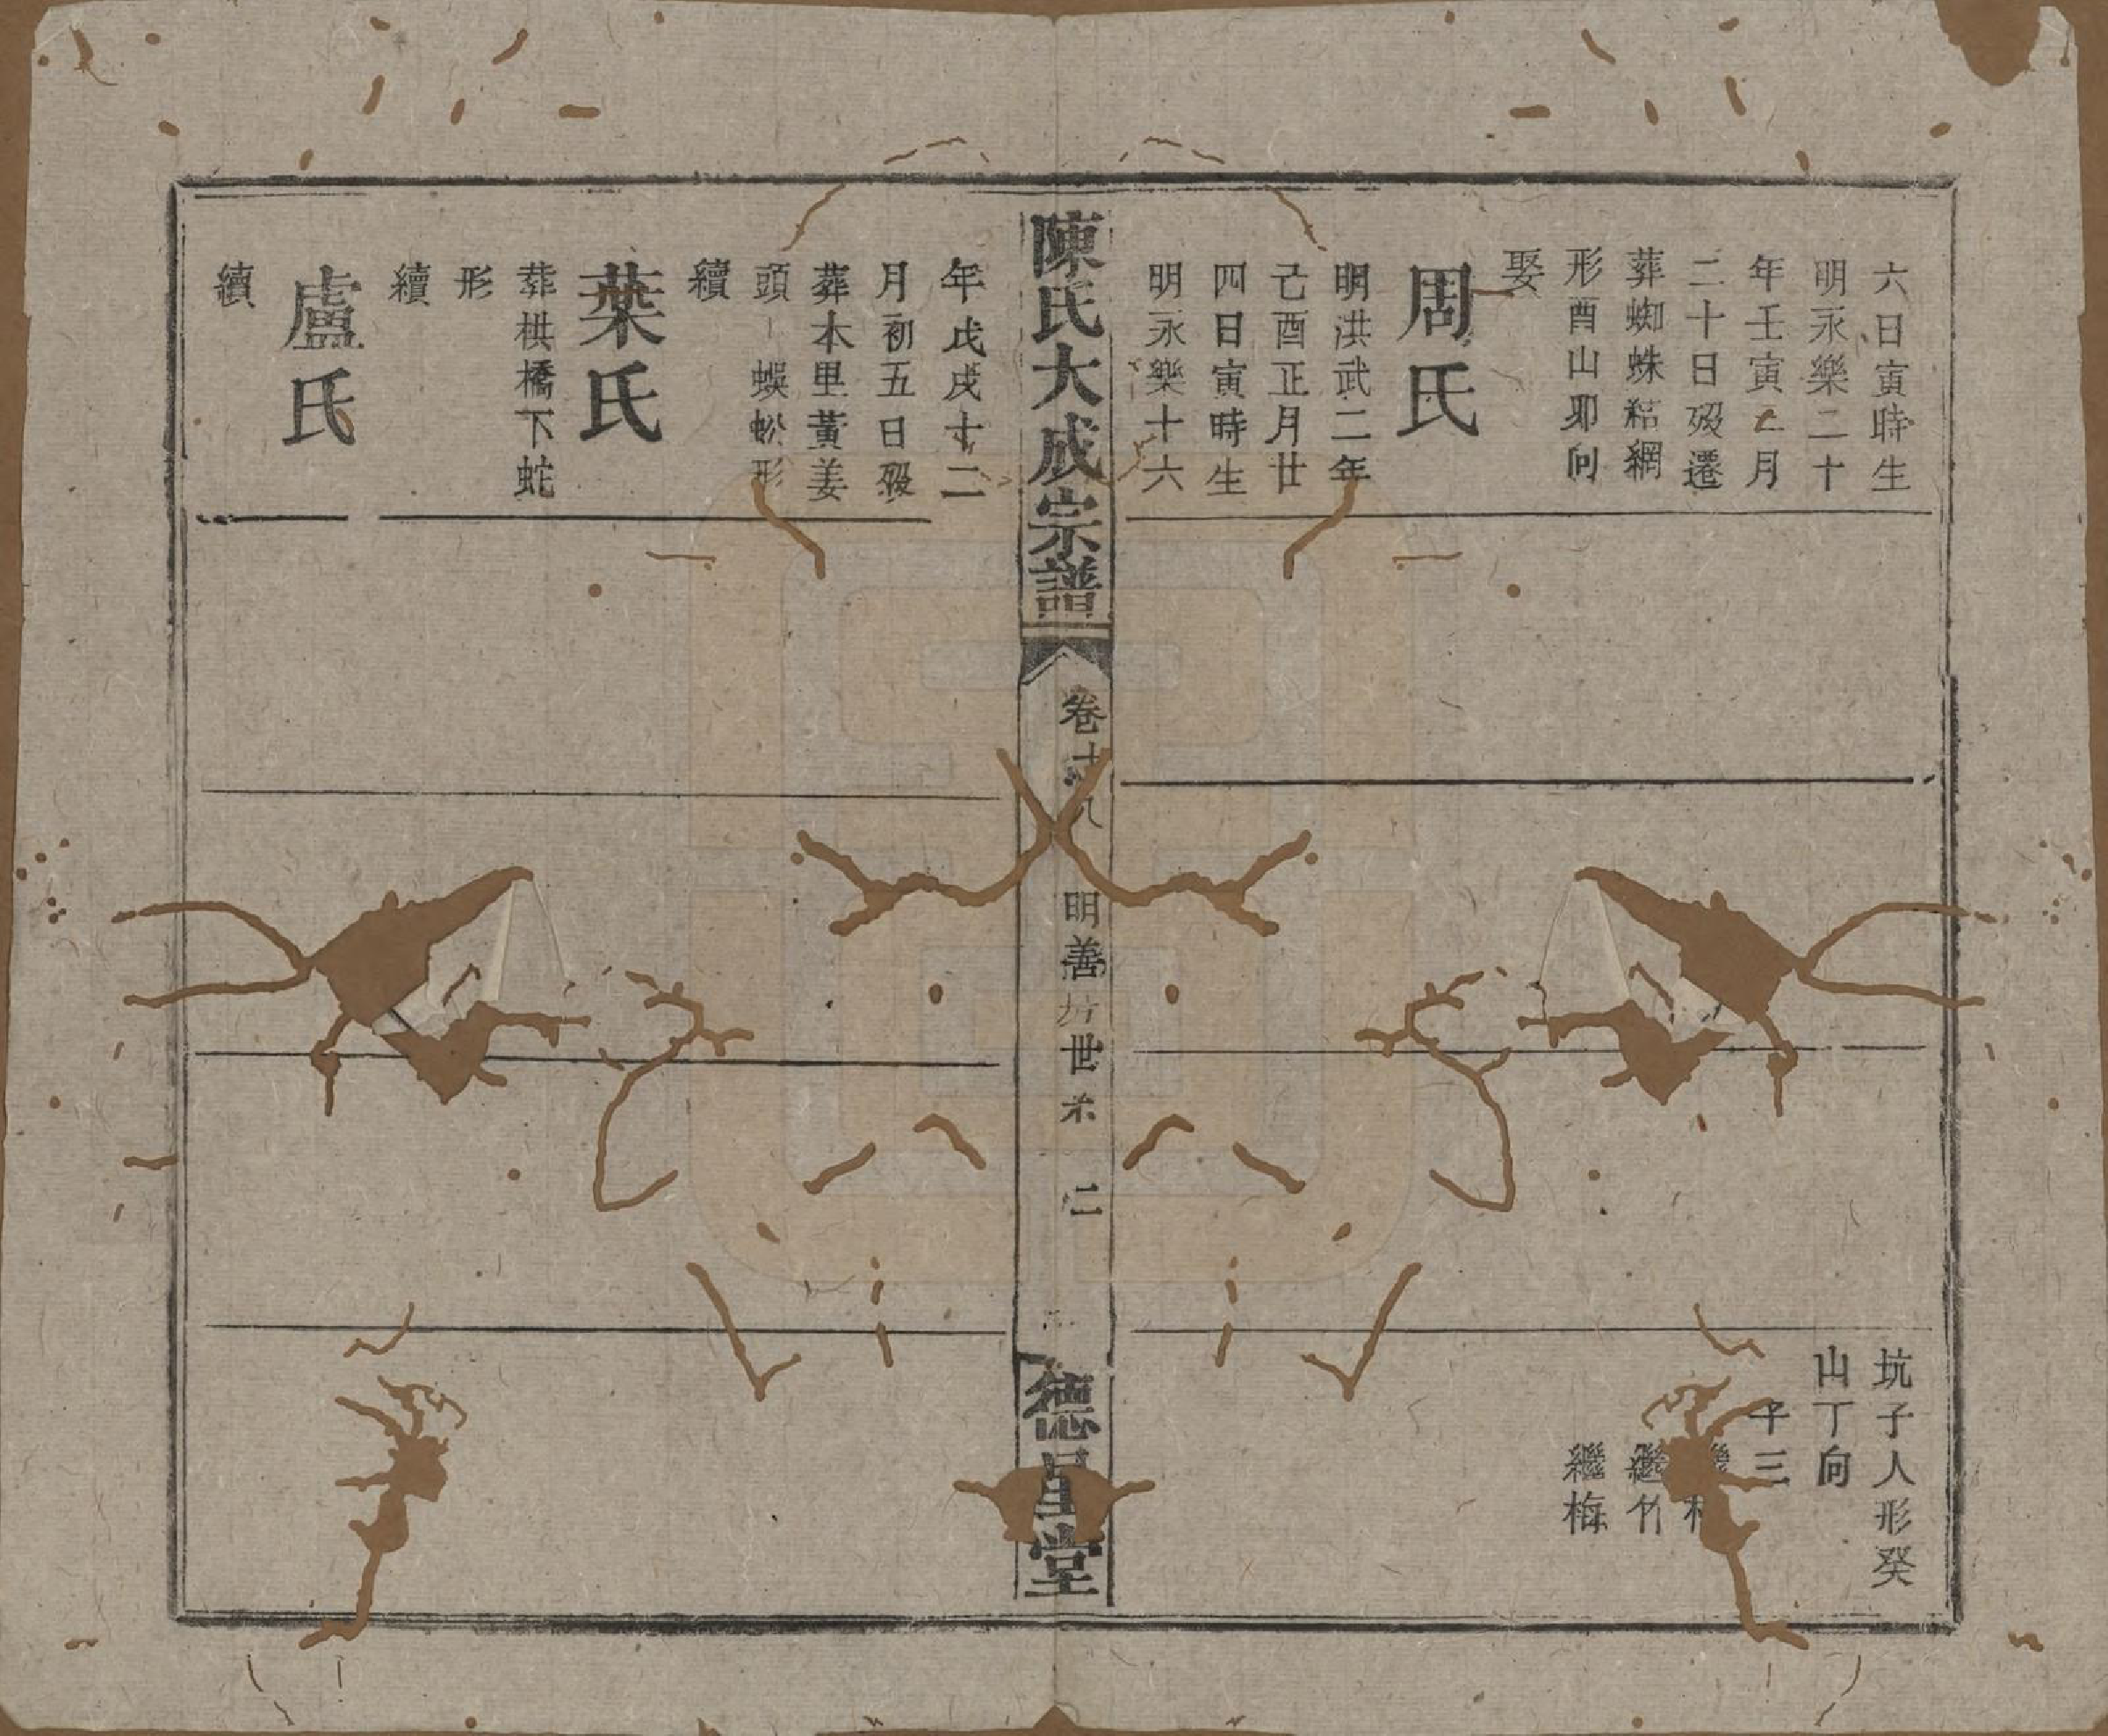 六日寅時生
明永樂二十
年壬寅二月
二十日歿遷
葬蜘蛛結網
形酉山卯向
娶
周氏
明洪武二年
己酉正月廿
四日寅時生
明永樂十六
坑子人形癸
山丁向
子三
繼竹
繼梅
陳氏大成宗譜
卷十八
明善坊世系
二
德星堂
年戊戌十二
月初五日歿
葬本里黃姜
頭蜈蚣形
續
葉氏
葬栱橋下蛇
形
續
盧氏
續